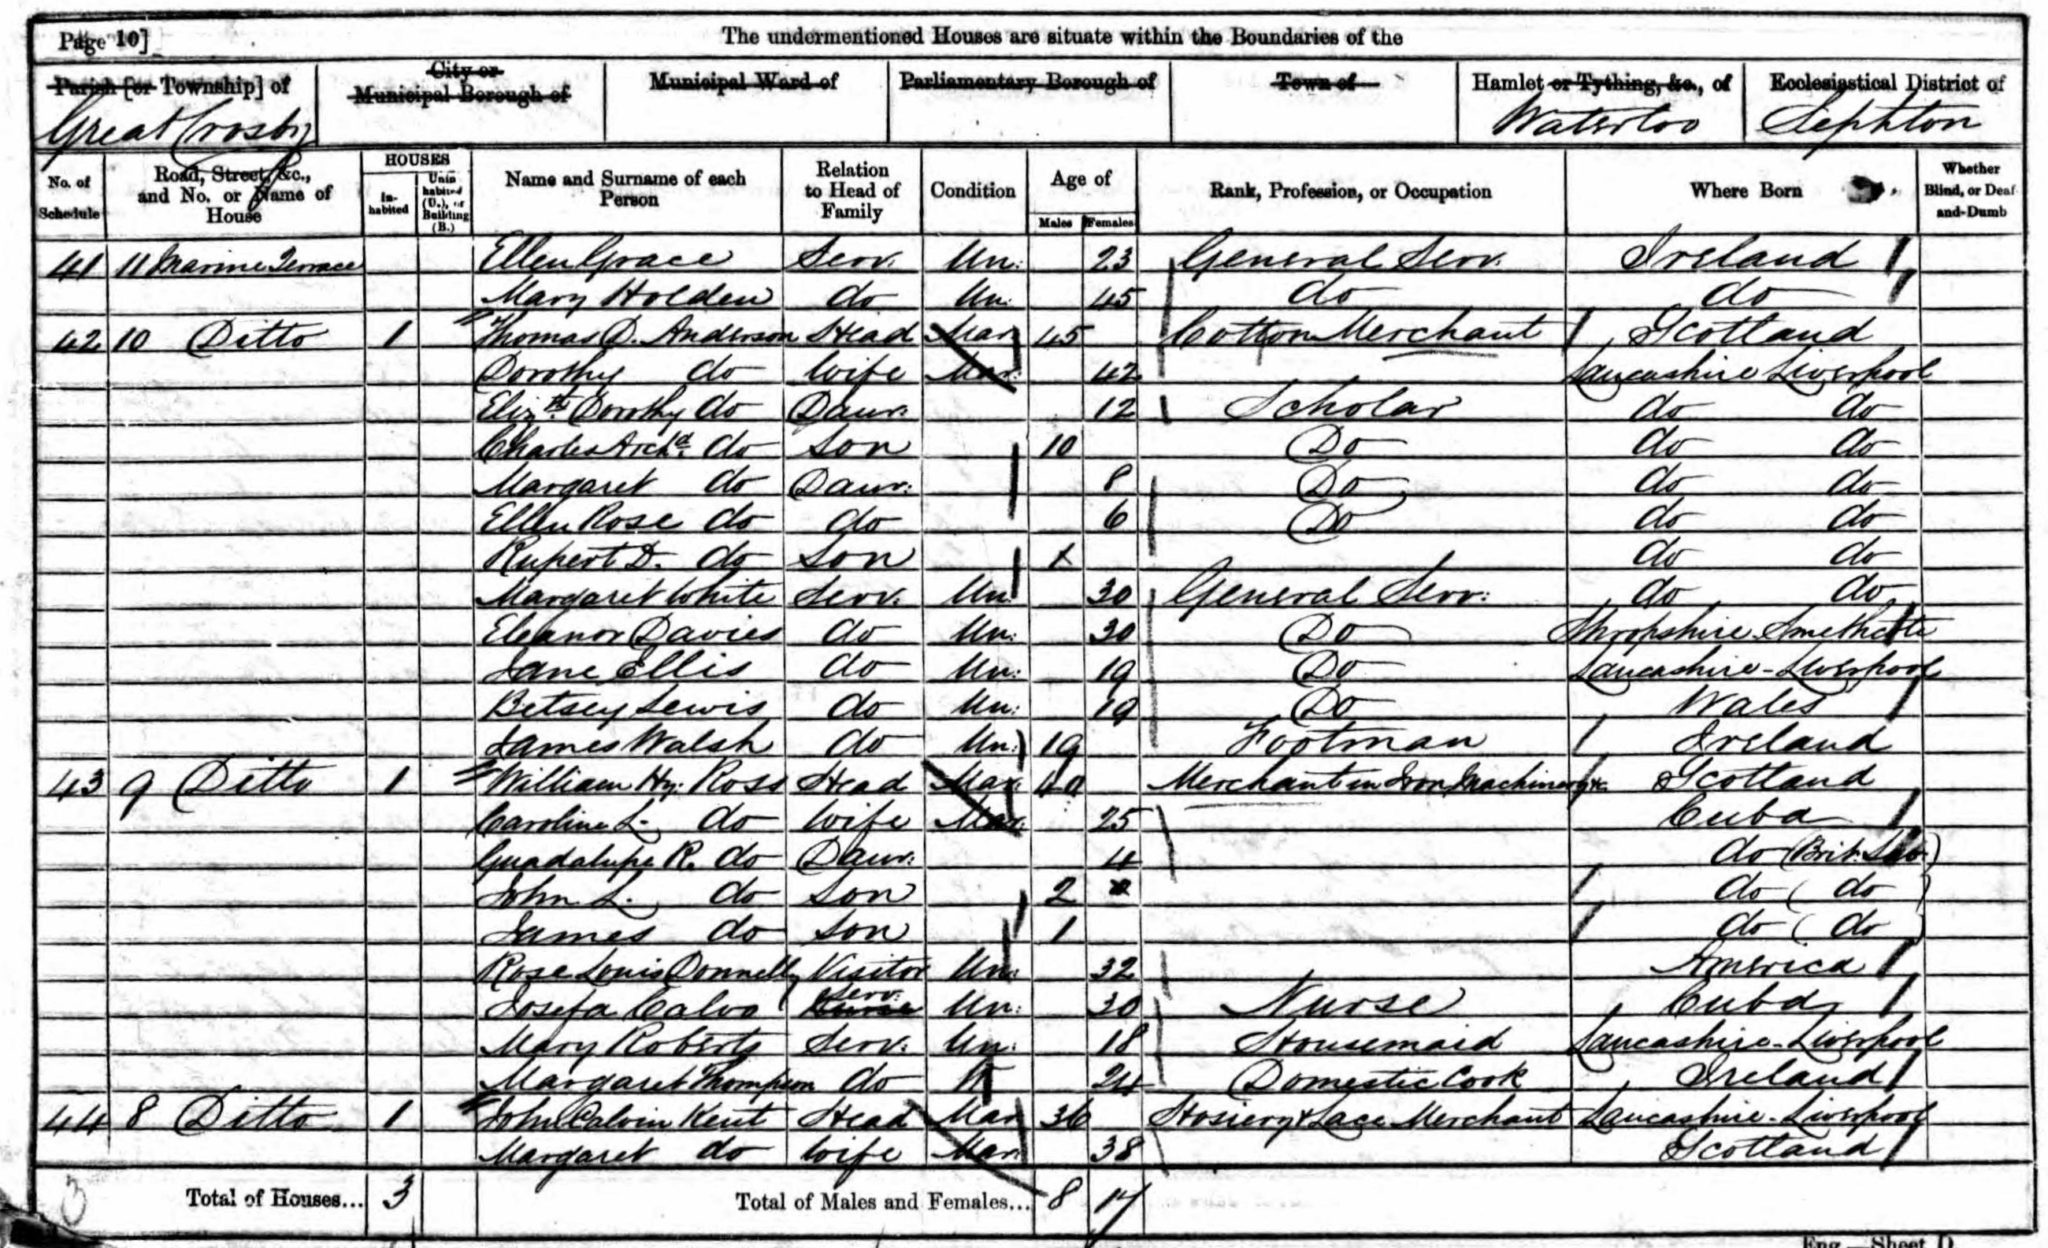 Page 10]
The undermentioned Houses are situate within the Boundaries of the
Parish [or Township] of
City or Municipal Borough of
Municipal Ward of
Parliamentary Borough of
Town of
Hamlet or Tything, &c., of
Ecclesiastical District of
Great Crosby
Waterloo
Sephton
No. of Schedule
Road, Street, &c., and No. or Name of House
HOUSES
In-habited
Unin habited (U.), or Building (B.)
Name and Surname of each Person
Relation to Head of Family
Condition
Age of
Males
Females
Rank, Profession, or Occupation
Where Born
Whether Blind, or Deaf-and-Dumb
41 11 Marine Terrace Ellen Grace Serv. Un: 23 General Serv. Ireland
Mary Holden do Un. 45 do do
42 10 Ditto 1 Thomas D. Anderson Head Mar 45 Cotton Merchant Scotland
Dorothy do Wife Mar: 42 Lancashire Liverpool
Elizth. Dorothy do Daur. 12 Scholar do do
Charles Archd. do Son 10 Do do do
Margaret do Daur: 8 Do do do
Ellen Rose do do 6 Do do do
Rupert D. do Son do do
Margaret White Serv. Un. 30 General Serv: do do
Eleanor Davies do Un: 30 Do Shropshire Smethcote
Jane Ellis do Un: 19 Do Lancashire - Liverpool
Betsey Lewis do Un: 19 Do Wales
James Walsh do Un: 19 Footman Ireland
43 9 Ditto 1 William Hy: Ross Head Mar. 40 Merchant in Iron, Machinery &c. Scotland
Caroline L. do Wife Mar. 25 Cuba
Guadalupe R. do Daur. 4 do (Brit. Sub.)
John L. do Son 2 do ( do )
James do Son 1 do ( do )
Rose Louis Donnelly Visitor Un: 32 America
Josefa Calvo Serv. Nurse Un: 30 Nurse Cuba
Mary Roberts Serv. Un: 18 Housemaid Lancashire - Liverpool
Margaret Thompson do W 24 Domestic Cook Ireland
44 8 Ditto 1 John Calvin Kent Head Mar 36 Hosiery & Lace Merchant Lancashire - Liverpool
Margaret do Wife Mar. 38 Scotland
3 Total of Houses... 3 Total of Males and Females... 8 17
Eng.—Sheet D.